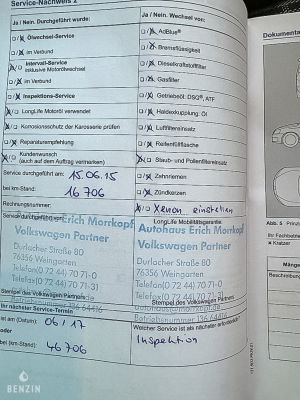 Service-Nachweis 2
Ja / Nein. Durchgeführt wurde:
Ölwechsel-Service
im Verbund
Intervall-Service
inklusive Motorölwechsel
im Verbund
Inspektions-Service
LongLife Motoröl verwendet
Korrosionsschutz der Karosserie prüfen
Reparaturempfehlung
Kundenwunsch
(auch auf dem Auftrag vermerken)
Service durchgeführt am:
15.06.15
bei km-Stand:
16 706
Rechnungsnummer:
Service durchgeführt von:
Autohaus Erich Morrkopf
Volkswagen Partner
Durlacher Straße 80
76356 Weingarten
Telefon (0 72 44) 70 71-0
Telefax (0 72 44) 70 71-31
Stempel des Volkswagen Partners
Ihr nächster Service-Termin
ist am (Datum):
06/17
oder
bei (km-Stand):
46 706
Ja / Nein. Wechsel von:
AdBlue®
Bremsflüssigkeit
Dieselkraftstofffilter
Gasfilter
Getriebeöl: DSG®, ATF
Haldexkupplung: Öl
Luftfiltereinsatz
Reifenfüllflasche
Staub- und Pollenfiltereinsatz
Zahnriemen
Zündkerzen
Xenon einstellen
LongLife Mobilitätsgarantie:
Autohaus Erich Morrkopf
Volkswagen Partner
Durlacher Straße 80
76356 Weingarten
Telefon (0 72 44) 70 71-0
Stempel des Volkswagen Partners
Betriebsnummer 136 64416
Welcher Service ist als nächster erforderlich?
Inspektion
Dokumenta
Abb. 5
Kratzer
Mängel
Beschreibung
BENZIN